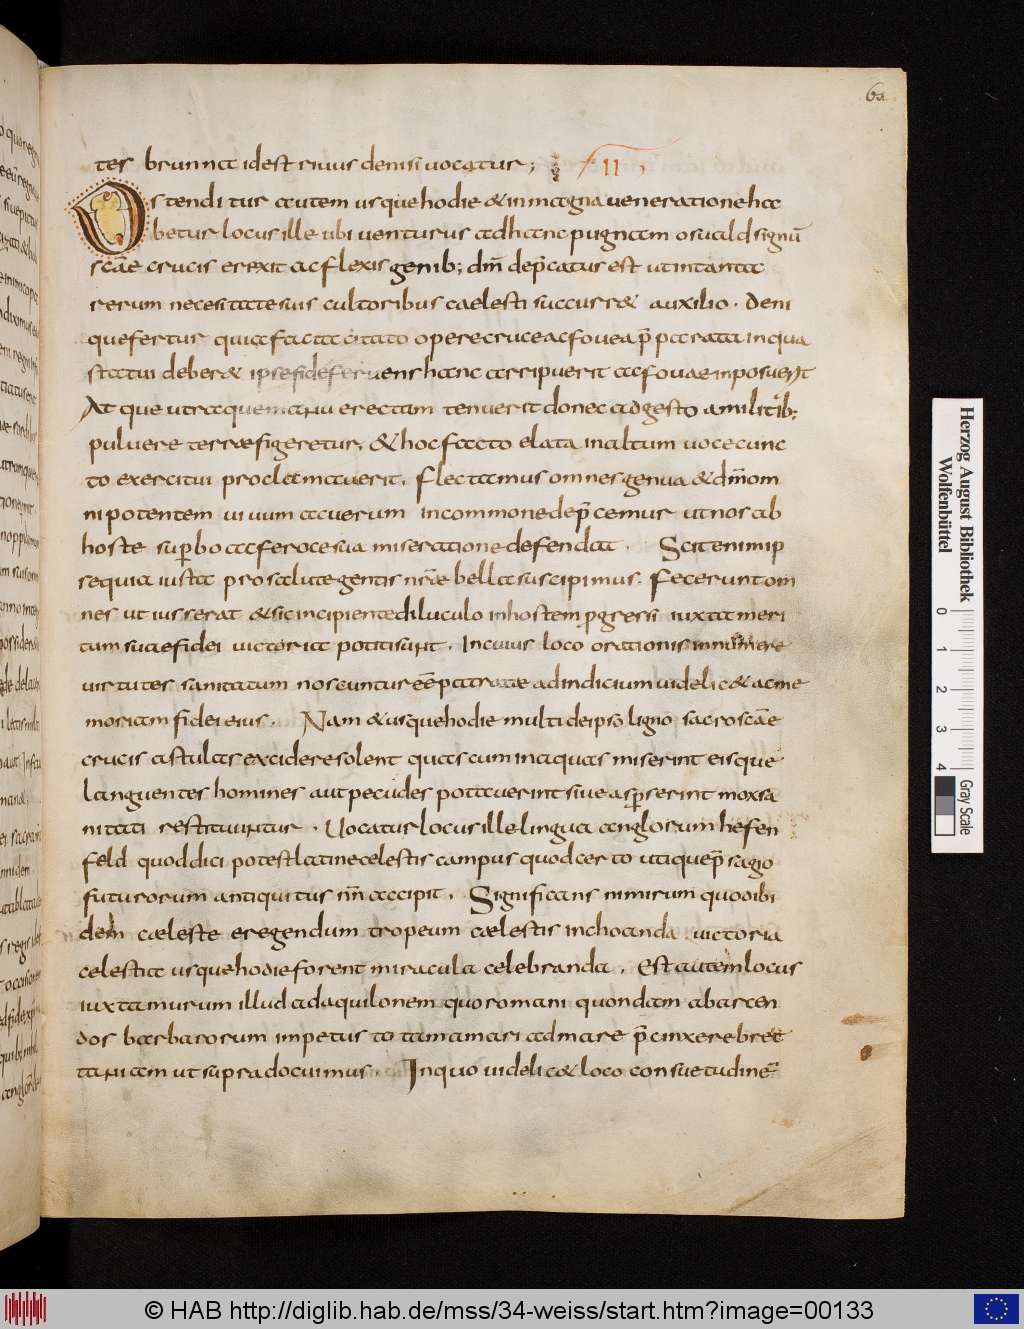 62
tes brunna id est riuus denisi uocatur; II,
Ostenditur autem usque hodie & in magna ueneratione ha
betur locus ille ubi uenturus ad hanc pugnam osuald signū
scāe crucis erexit ac flexis genib; dm̄ dep̄catus est ut in tanta
rerum necesitate suis cultoribus caelesti succurr& auxilio. Deni
que fertur quia facta citato opere cruce ac fouea p̄parata in qua
statui deber& ipse fide feruens hanc arripuerit ac fouae inposuerit
Atque utraque manu erectam tenuerit donec adgesto a militib;
puluere terrae figeretur, & hoc facto elata in altum uoce cunc
to exercitui proclamauerit. Flectamus omnes genua & dm̄ om
nipotentem uiuum ac uerum in commone dep̄cemur ut nos ab
hoste superbo ac feroce sua miseratione defendat. Scit enim ip
se quia iusta pro salute gentis nr̄ae bella suscipimus. Fecerunt om
nes ut iusserat & sic incipiente diluculo in hostem pgressi iuxta meri
tum suae fidei uictoria potiti sunt. In cuius loco orationis innumere
uirtutes sanitatum noscuntur eē patratae ad indicium uidelic& ac me
moriam fidei eius. Nam & usque hodie multi de ipso ligno sacroscāe
crucis astulas excidere solent quas cum in aquas miserint eisque
languentes homines aut pecudes potauerint siue asperserint mox sa
nitati restituuntur. Uocatur locus ille lingua anglorum hefen
feld quod dici potest latine celestis campus quod certo utique p̄sagio
futurorum antiquitus nn̄ accipit. Significans nimirum quod ibi
dem cæleste eregendum tropeum cælestis inchoanda uictoria
celestia usque hodie forent miracula celebranda. Est autem locus
iuxta murum illud ad aquilonem quo romani quondam ab arcen
dos barbarorum impetus totam a mari ad mare p̄cinxere bret
taniam ut supra docuimus. In quo uidelic& loco consuetudinē
Herzog August Bibliothek
Wolfenbüttel
0 1 2 3 4
Gray Scale
© HAB http://diglib.hab.de/mss/34-weiss/start.htm?image=00133